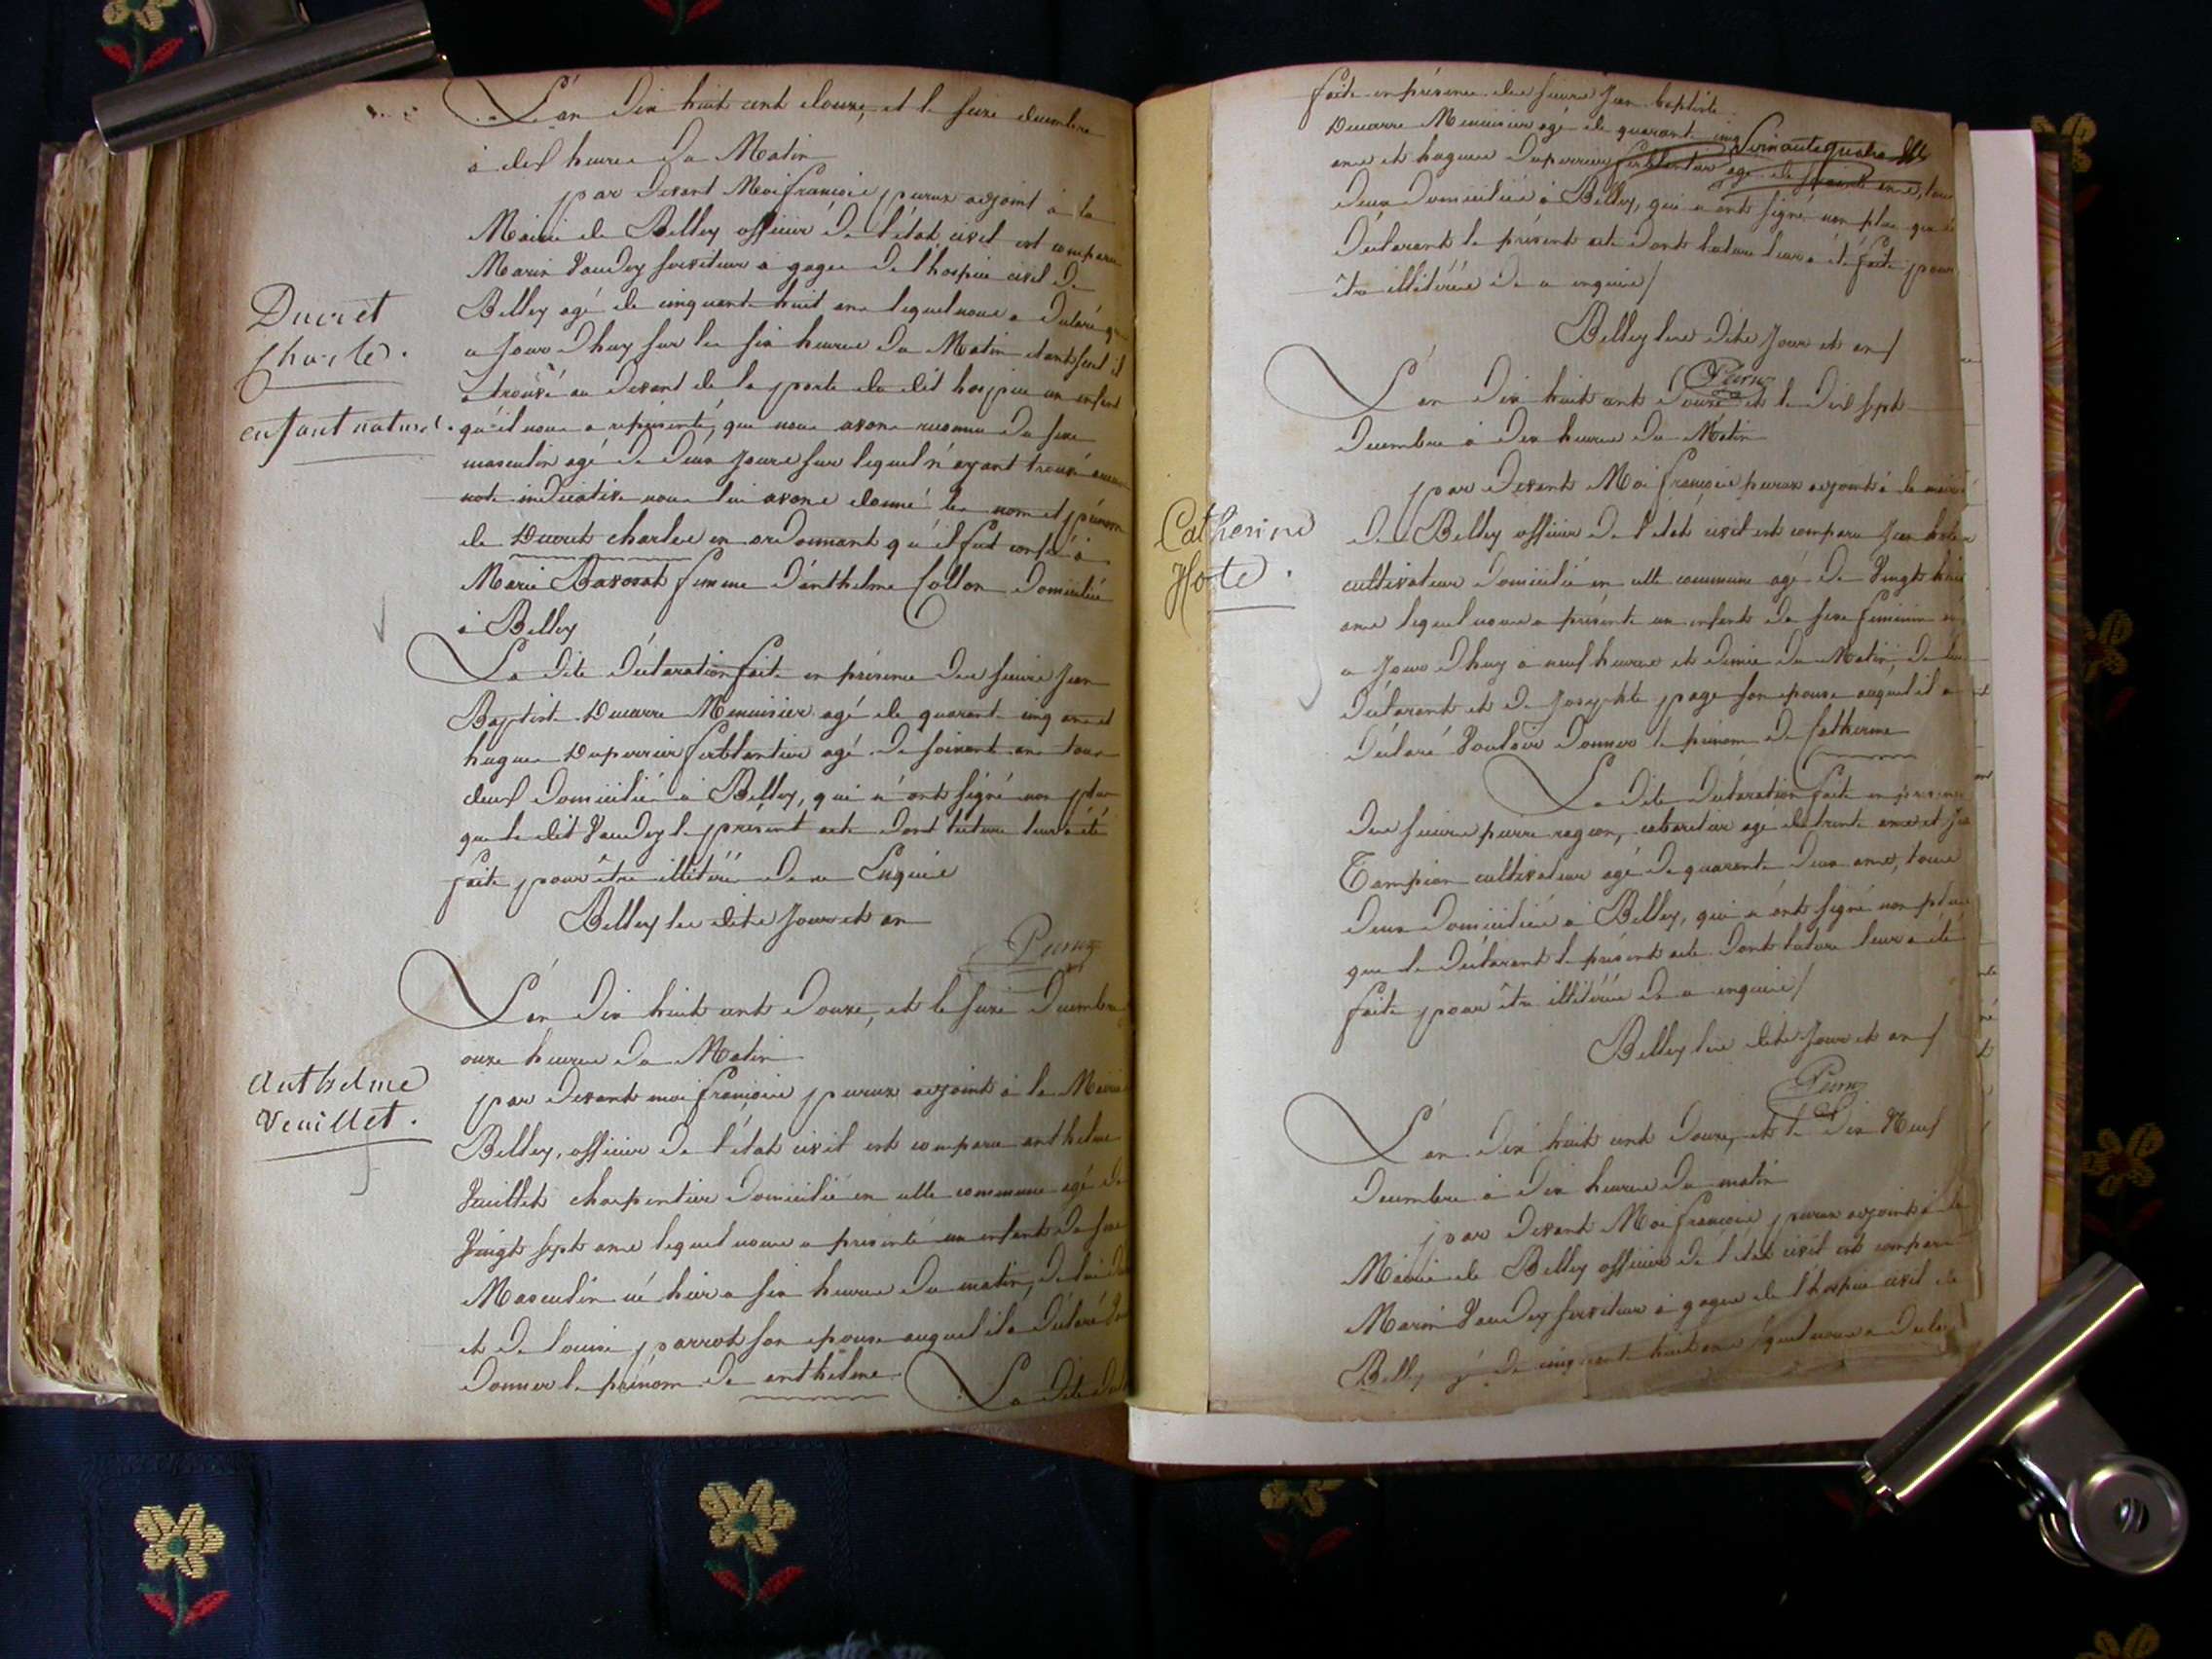 L'an dix huit cent douze, et le seize decembre
à dix heures du Matin
par devant Moi françois peraux adjoint à la
Mairie de Belley officier de l'état civil est comparu
Marin Vaudey serviteur à gages de l'hospice civil de
Belley agé de cinquante huit ans lequel nous a déclaré que
ce jour d'huy sur les six heures du Matin étant seul il
a trouvé au devant de la porte du dit hospice un enfant
qu'il nous a représenté, que nous avons reconnu du sexe
masculin agé de deux jours sur lequel n'ayant trouvé aucune
note indicative nous lui avons donné les nom et prénom
de Ducret charles en ordonnant qu'il fut confié à
Marie femme d'anthelme Collon domiciliée
à Belley
La dite déclaration faite en présence des sieurs Jean
Baptiste Ducarre Menuisier agé de quarante cinq ans et
hugues Duperrier ferblantier agé de soixante ans tous
deux domiciliés à Belley, qui n'ont signé non plus
que le dit Vaudey le présent acte dont lecture leur a été
faite pour être illitéré de ce Enquis
Belley les dits jour et an
Ducret
Charles.
enfant naturel.
L'an dix huit cent douze, et le seize Decembre
onze heures du Matin
par devant moi françois peraux adjoint à la Mairie
Belley, officier de l'état civil est comparu anthelme
Vuillet charpentier domicilié en cette commune agé de
Vingt sept ans lequel nous a présenté un enfant du sexe
Masculin né hier à six heures du matin, de lui
et de louise parrot son epouse auquel il a déclaré
donner le prénom de anthelme. La dite
Anthelme
Veuillet.
faite en présence des sieurs Jean baptiste
Ducarre Menuisier agé de quarante cinq
ans et hugues Duperrier ferblantier agé de soixante ans, tous
Soixante quatre
deux domiciliés à Belley, qui n'ont signé non plus que le
Déclarant le présent acte dont lecture leur a été faite pour
être illitérés de ce enquis/
Belley les dits Jour et an/
L'an dix huit cent Douze et le dix sept
Decembre à dix heures du Matin
par devant Moi françois peraux adjoint à la mairie
de Belley officier de l'état civil est comparu Jean hote
cultivateur domicilié en cette commune agé de Vingt huit
ans lequel nous a présenté un enfant du sexe féminin né
ce Jour d'huy à neuf heures et demie du Matin de lui
déclarant et de Josephte page son epouse auquel il a
déclaré Vouloir donner le prénom de Catherine
La dite déclaration faite en présence
des sieurs pierre ragion, cabaretier agé de trente ans et
Tampion cultivateur agé de quarante deux ans, tous
deux domiciliés à Belley, qui n'ont signé non plus
que le déclarant le présent acte dont lecture leur a été
faite pour être illitérés de ce enquis/
Belley les dits Jour et an/
Catherine
Hote.
L'an dix huit cent douze, et le dix Neuf
Decembre à dix heures du matin
par devant Moi françois peraux adjoint à la
Mairie de Belley officier de l'état civil est comparu
Marin Vaudey serviteur à gages de l'hospice civil de
Belley agé de cinquante huit ans lequel nous a